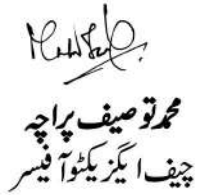 محمد توصیف پراچہ
چیف ایگزیکٹو آفیسر